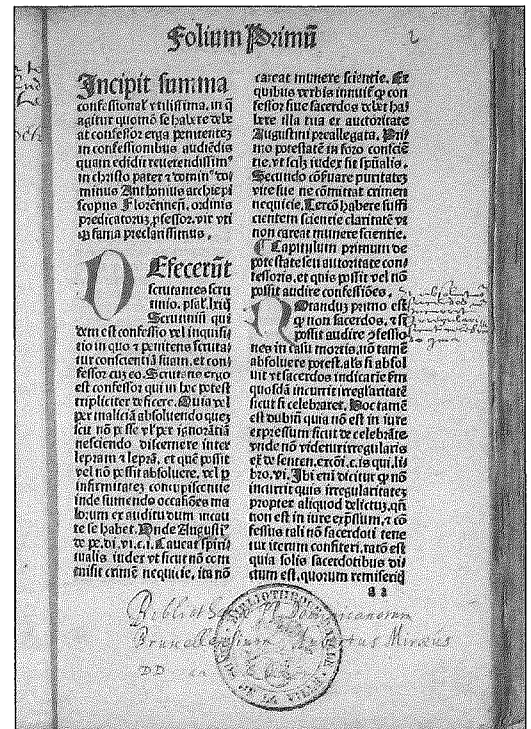 Folium Primū
Incipit summa
confessional' vtilissima. in q̄
agitur quomō se habere debe
at confessor erga penitentez
in confessionibus audiēdis
quam edidit reuerendissimꝰ
in christo pater ⁊ dominꝰ do
minus Anthonius archiepi
scopus Florētineñ. ordinis
predicatoruꝫ ꝓfessor. vir vti
fama preclarissimus.
DEfecerūt
scrutantes scru
tinio. psal. lxiij
Scrutiniū qui
dem est confessio vel inquisi
tio in quo ⁊ penitens scruta
tur conscientiā suam, et con
fessor cū eo. Scrutans ergo
est confessor qui in hoc potest
tripliciter deficere. Quia vel
per maliciā absoluendo quez
scit nō posse vel per ignorātiā
nesciendo discernere inter
lepram ⁊ leprā. et quē possit
vel nō possit absoluere. vel ꝓ
infirmitatez concupiscentie
inde sumendo occasiōes ma
lorum ex auditu dum incau
te se habet. Unde Augustiꝰ
de pe. di. vi. c. i. Caueat spiri
tualis iudex vt sicut nō com
misit crimē nequicie, ita nō
careat munere scientie. Ex
quibus verbis innuit ꝙ con
fessor siue sacerdos debet ha
bere illa tria ex auctoritate
Augustini preallegata. Pri
mo potestatē in foro consciē
tie. vt scilꝫ iudex sit spūalis.
Secundo cōseruare puritatez
vite sue ne cōmittat crimen
nequicie. Tercō habere suffi
cientem scientie claritatē vt
non careat munere scientie.
Capitulum primum de
potestate seu autoritate con
fessoris. et quis possit vel nō
possit audire confessiōes.
NOtanduꝫ primo est
ꝙ non sacerdos, ⁊ si
possit audire ꝯfessio
nes in casu mortis, nō tamē
absoluere potest. als si absol
uit vt sacerdos indicatie fm
quosdā incurrit irregularitatē
sicut si celebraret. Hoc tamē
est dubiū quia nō est in iure
expressum sicut de celebrāte
vnde nō videntur irregularis
ex̄ de senten. excōi. c. is qui. li
bro. vi. Ibi eni dicitur ꝙ nō
incurrit quis irregularitatez
propter aliquod delictuꝫ, qn̄
non est in iure exp̄ssum. ⁊ cō
fessus tali nō sacerdoti tene
tur iterum confiteri. ratō est
quia solis sacerdotibus di
ctum est. quorum remiseritꝭ
a a
Bibliothecæ PP Dominicanorum
Bruxellensium Aubertus Miræus
DD
BIBLIOTHEQUE
DE LA VILLE